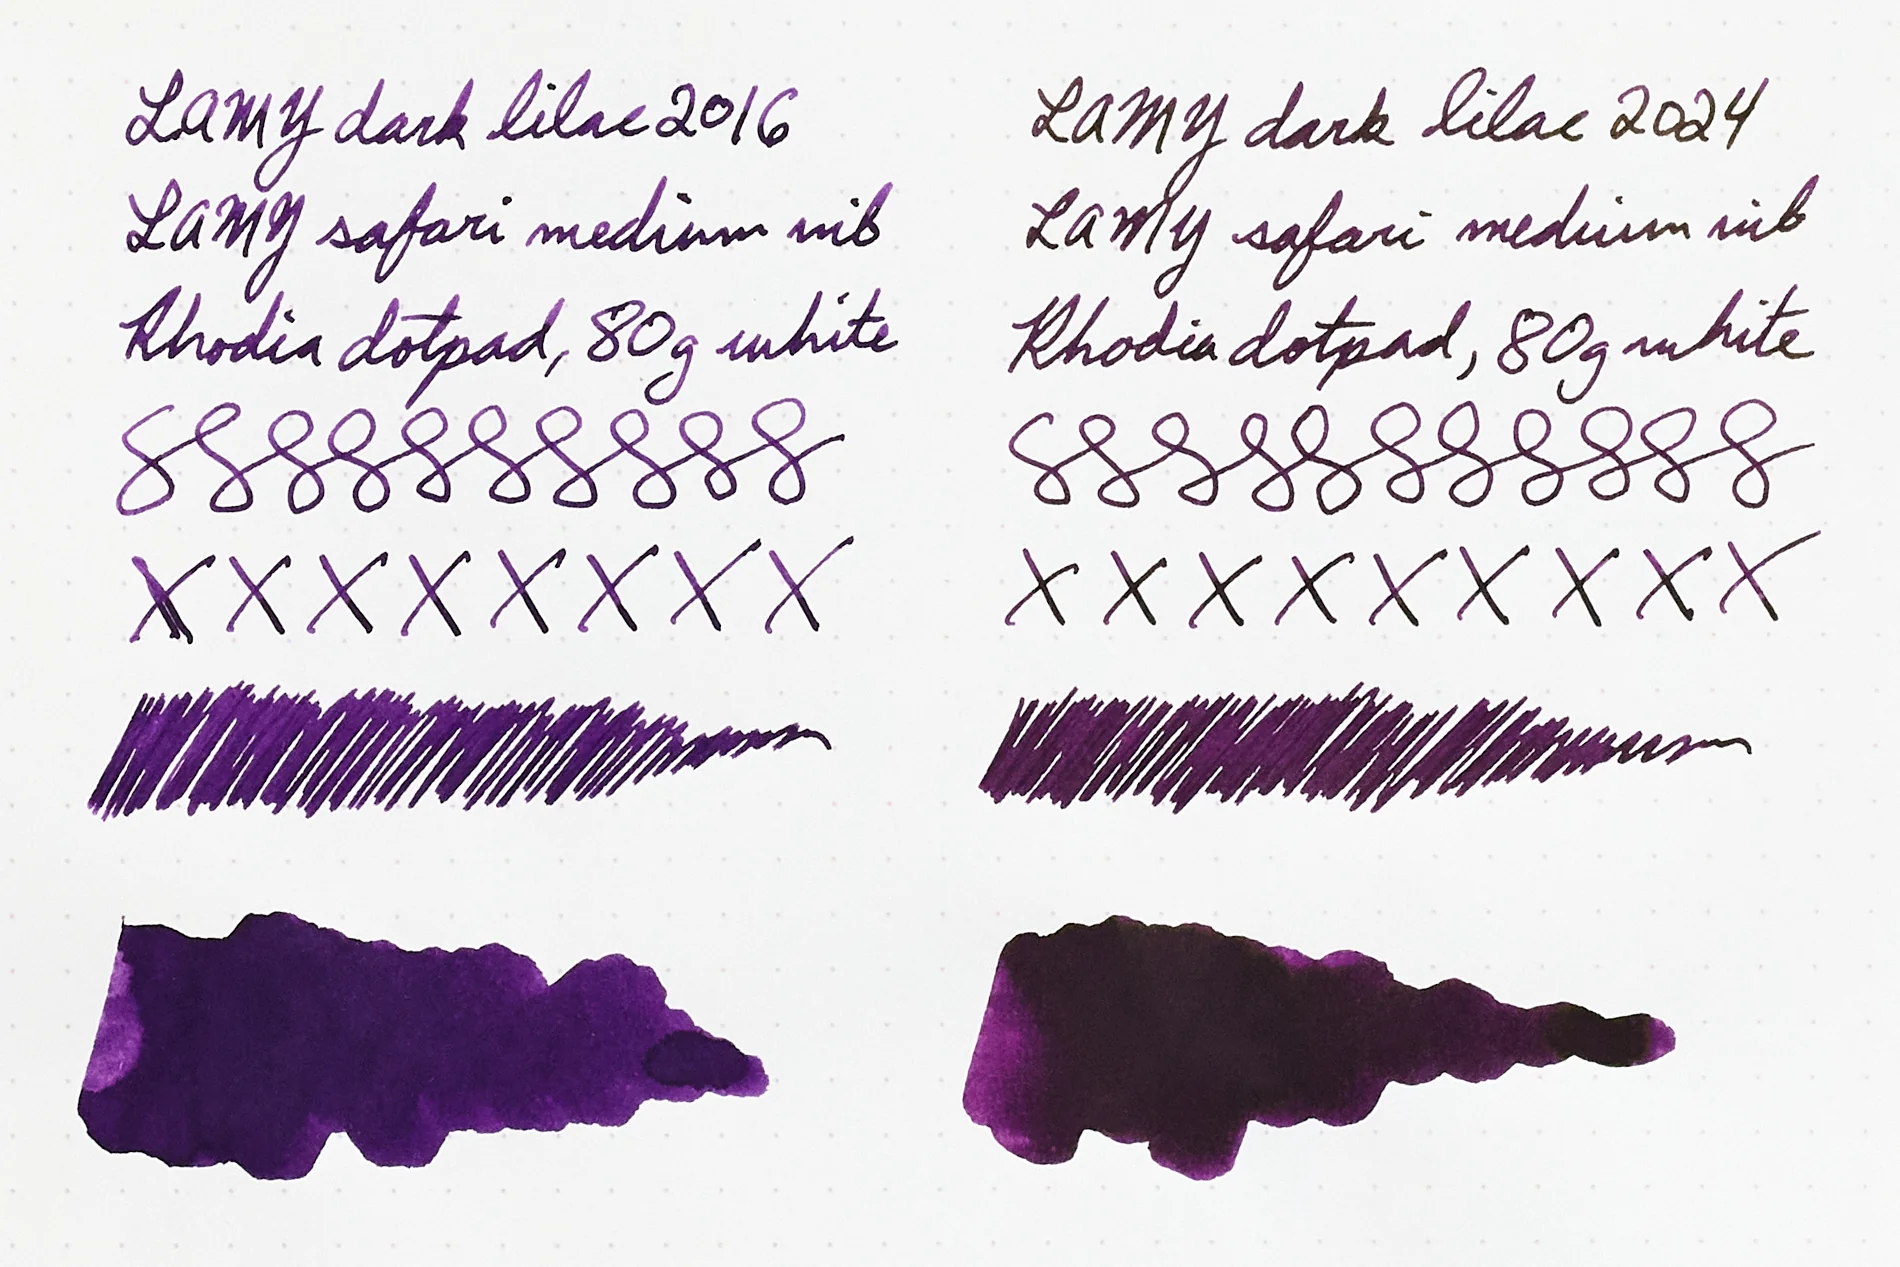 LAMY dark lilac 2016
LAMY safari medium nib
Rhodia dotpad, 80g white
X X X X X X X X
LAMY dark lilac 2024
LAMY safari medium nib
Rhodia dotpad, 80g white
X X X X X X X X X